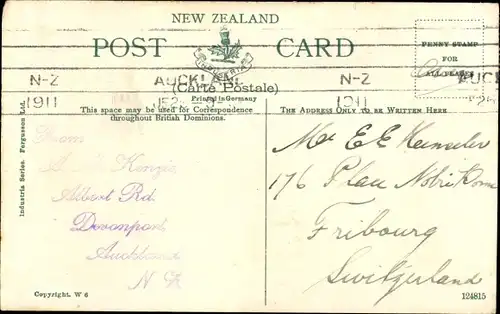 NEW ZEALAND
POST CARD
INDUSTRIA
(Carte Postale)
Printed in Germany
PENNY STAMP
FOR
ALL PLACES
N-Z AUCKLAND N-Z AUCK
1911 1911
This space may be used for Correspondence
throughout British Dominions.
THE ADDRESS ONLY TO BE WRITTEN HERE
From
Kenzie
Albert Rd.
Devonport
Auckland
N Z
Mr E E
176 Plau
Fribourg
Switzerland
Industria Series. Fergusson Ltd.
Copyright. W 6
124815